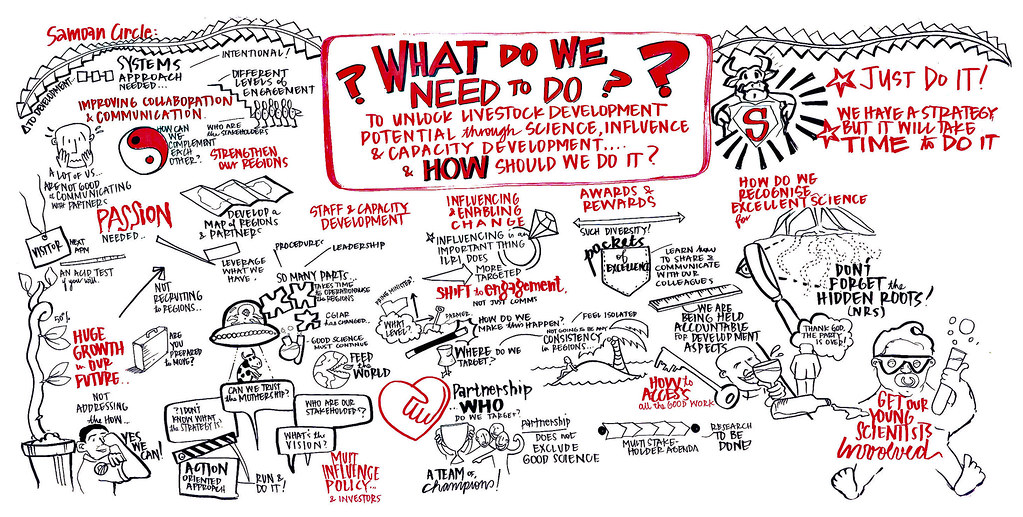 Samoan Circle:
WHAT DO WE
NEED TO DO
? ? ?
TO UNLOCK LIVESTOCK DEVELOPMENT
POTENTIAL through SCIENCE, INFLUENCE
& CAPACITY DEVELOPMENT....
& HOW SHOULD WE DO IT?
TO DEVELOPMENT
SYSTEMS
APPROACH
NEEDED...
INTENTIONAL!
DIFFERENT
LEVELS of
ENGAGEMENT
IMPROVING COLLABORATION
& COMMUNICATION.
A LOT of US...
ARE NOT GOOD
@ COMMUNICATING
with PARTNERS
HOW CAN
WE
COMPLEMENT
EACH
OTHER?
WHO ARE
the STAKEHOLDERS
STRENGTHEN
OUR REGIONS
PASSION
NEEDED...
DEVELOP a
MAP of REGIONS
& PARTNERS
VISITOR
NEXT
APM
AN ACID TEST
if you will.
LEVERAGE
WHAT WE
HAVE.
NOT
RECRUITING
to REGIONS...
50%
HUGE
GROWTH
in OUR
FUTURE...
ARE
YOU
PREPARED
to MOVE?
NOT
ADDRESSING
the HOW...
YES
WE
CAN!
STAFF & CAPACITY
DEVELOPMENT
PROCEDURES
LEADERSHIP
SO MANY PARTS...
TAKES TIME
to OPERATIONALISE
the REGIONS
CGIAR
HAS CHANGED...
GOOD SCIENCE
MUST CONTINUE
FEED
the
WORLD
CAN WE TRUST
the MOTHERSHIP?
? I DON'T
KNOW WHAT
the STRATEGY IS?
WHO ARE OUR
STAKEHOLDERS?
WHAT'S the
VISION?
ACTION
ORIENTED
APPROACH
RUN &
DO IT!
MUST
INFLUENCE
POLICY...
& INVESTORS
INFLUENCING
& ENABLING
CHANGE
INFLUENCING is an
IMPORTANT THING
ILRI DOES
MORE
TARGETED
SHIFT to engagement,
NOT JUST COMMS
PRIME MINISTER?
WHAT
LEVEL?
FARMER
HOW DO WE
MAKE this HAPPEN?
WHERE DO WE
TARGET?
Partnership
...WHO
DO WE TARGET?
A TEAM of
champions!
partnership
DOES not
EXCLUDE
GOOD SCIENCE
AWARDS &
REWARDS
SUCH DIVERSITY!
pockets
of
EXCELLENCE
LEARN how
TO SHARE &
COMMUNICATE
WITH OUR
COLLEAGUES
FEEL ISOLATED
NOT GOING to BE ANY
CONSISTENCY
in REGIONS...
WE ARE
BEING HELD
ACCOUNTABLE
FOR DEVELOPMENT
ASPECTS
HOW to
ACCESS
all the GOOD WORK
MULTI STAKE-
HOLDER AGENDA
RESEARCH
TO BE
DONE
S
JUST DO IT!
WE HAVE A STRATEGY,
BUT IT WILL TAKE
TIME to DO IT
HOW DO WE
RECOGNISE
EXCELLENT SCIENCE
for
DON'T
FORGET the
HIDDEN ROOTS!
(NRS)
THANK GOD,
the PARTY
IS OVER!
GET OUR
YOUNG
SCIENTISTS
Involved